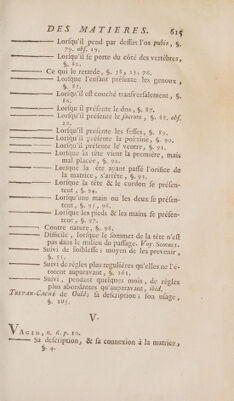 DES MATIERES. 615
——— Lorsqu'il pend par dessus l'os pubis, §.
79. obs. 19.
——— Lorsqu'il se porte du côté des vertébres,
§. 80.
——— Ce qui le retarde, §. 58, 23. 76.
——— Lorsque l'enfant présente les genoux,
§. 85.
——— Lorsqu'il est couché transversalement, §.
80.
——— Lorsqu'il présente le dos, §. 87.
——— Lorsqu'il présente le sacrum, §. 88. obs.
20.
——— Lorsqu'il présente les fesses, §. 89.
——— Lorsqu'il présente la poitrine, §. 90.
——— Lorsqu'il présente le ventre, §. 91.
——— Lorsque la tête vient la première, mais
mal placée, §. 92.
——— Lorsque la tête ayant passé l'orifice de
la matrice, s'arrête, §. 93.
——— Lorsque la tête & le cordon se présen-
tent, §. 94.
——— Lorsqu'une main ou les deux se présen-
tent, §. 95, 96.
——— Lorsque les pieds & les mains se présen-
tent, §. 97.
——— Contre nature, §. 98.
——— Difficile, lorsque le sommet de la tête n'est
pas dans le milieu du passage. Voy. SOMMET.
——— Suivi de foiblesse: moyen de les prévenir,
§. 51.
——— Suivi de régles plus réguliéres qu'elles ne l'é-
toient auparavant, §. 161.
——— Suivi, pendant quelques mois, de régles
plus abondantes qu'auparavant, ibid.
TREPAN-CACHÉ de Ould; sa description; son usage,
§. 105.
V.
VAGIN, n. 6. p. 10.
——— Sa description, & sa connexion à la matrice,
§. 4.